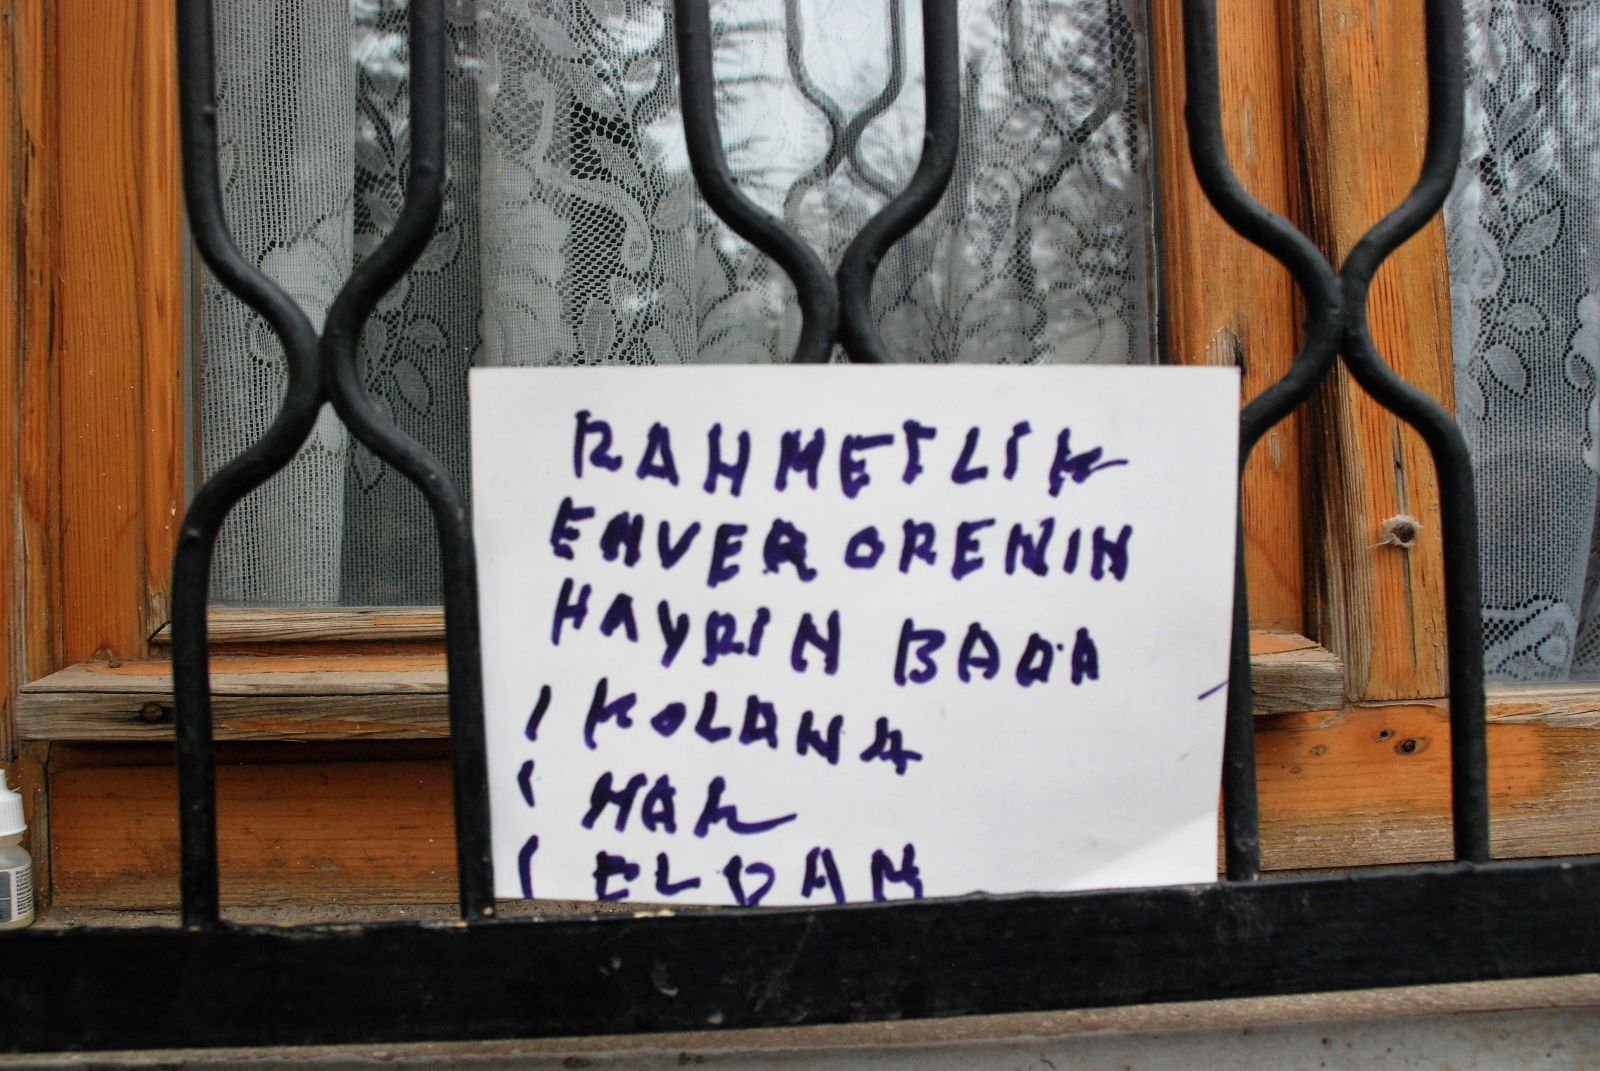 RAHMETLİK
ENVER ORENIN
HAYRIN BADA
KOLANA
HAK
ELDAN